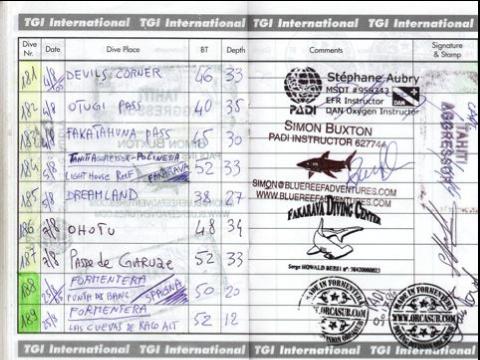 TGI International TGI International TGI International TGI International TGI International TGI International
Dive Nr. Date Dive Place BT Depth Comments Signature & Stamp
181 4/8 DEVILS CORNER 46 33
182 5/8 OTUGI PASS 40 35
183 FAKATAHUNA PASS 45 30
184 5/8 TAHITI AGGRESSOR - POLINESIA
LIGHT HOUSE REEF FAKARAVA 52 33
185 5/8 DREAMLAND 38 27
186 7/8 OHOTU 48 34
187 7/8 PASSE DE GARUAE 52 33
188 FORMENTERA
PUNTA DI BANC SPAGNA 50 20
189 FORMENTERA
LAS CUEVAS DE RACO ALT 52 12
Stéphane Aubry
MSDT #959243
EFR Instructor
DAN Oxygen Instructor
PADI
DAN
SIMON BUXTON
PADI INSTRUCTOR 627744
SIMON@BLUEREEFADVENTURES.COM
WWW.BLUEREEFADVENTURES.COM
FAKARAVA DIVING CENTER
Serge HOWALD
TAHITI AGGRESSOR
MADE IN FORMENTERA
WWW.ORCASUB.COM
MADE IN FORMENTERA
WWW.ORCASUB.COM
TGI International TGI International TGI International TGI International TGI International TGI International